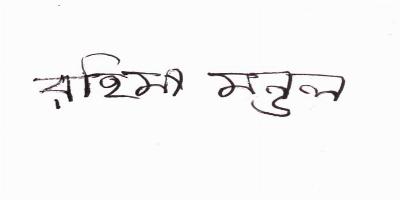 রহিমা মন্ডল